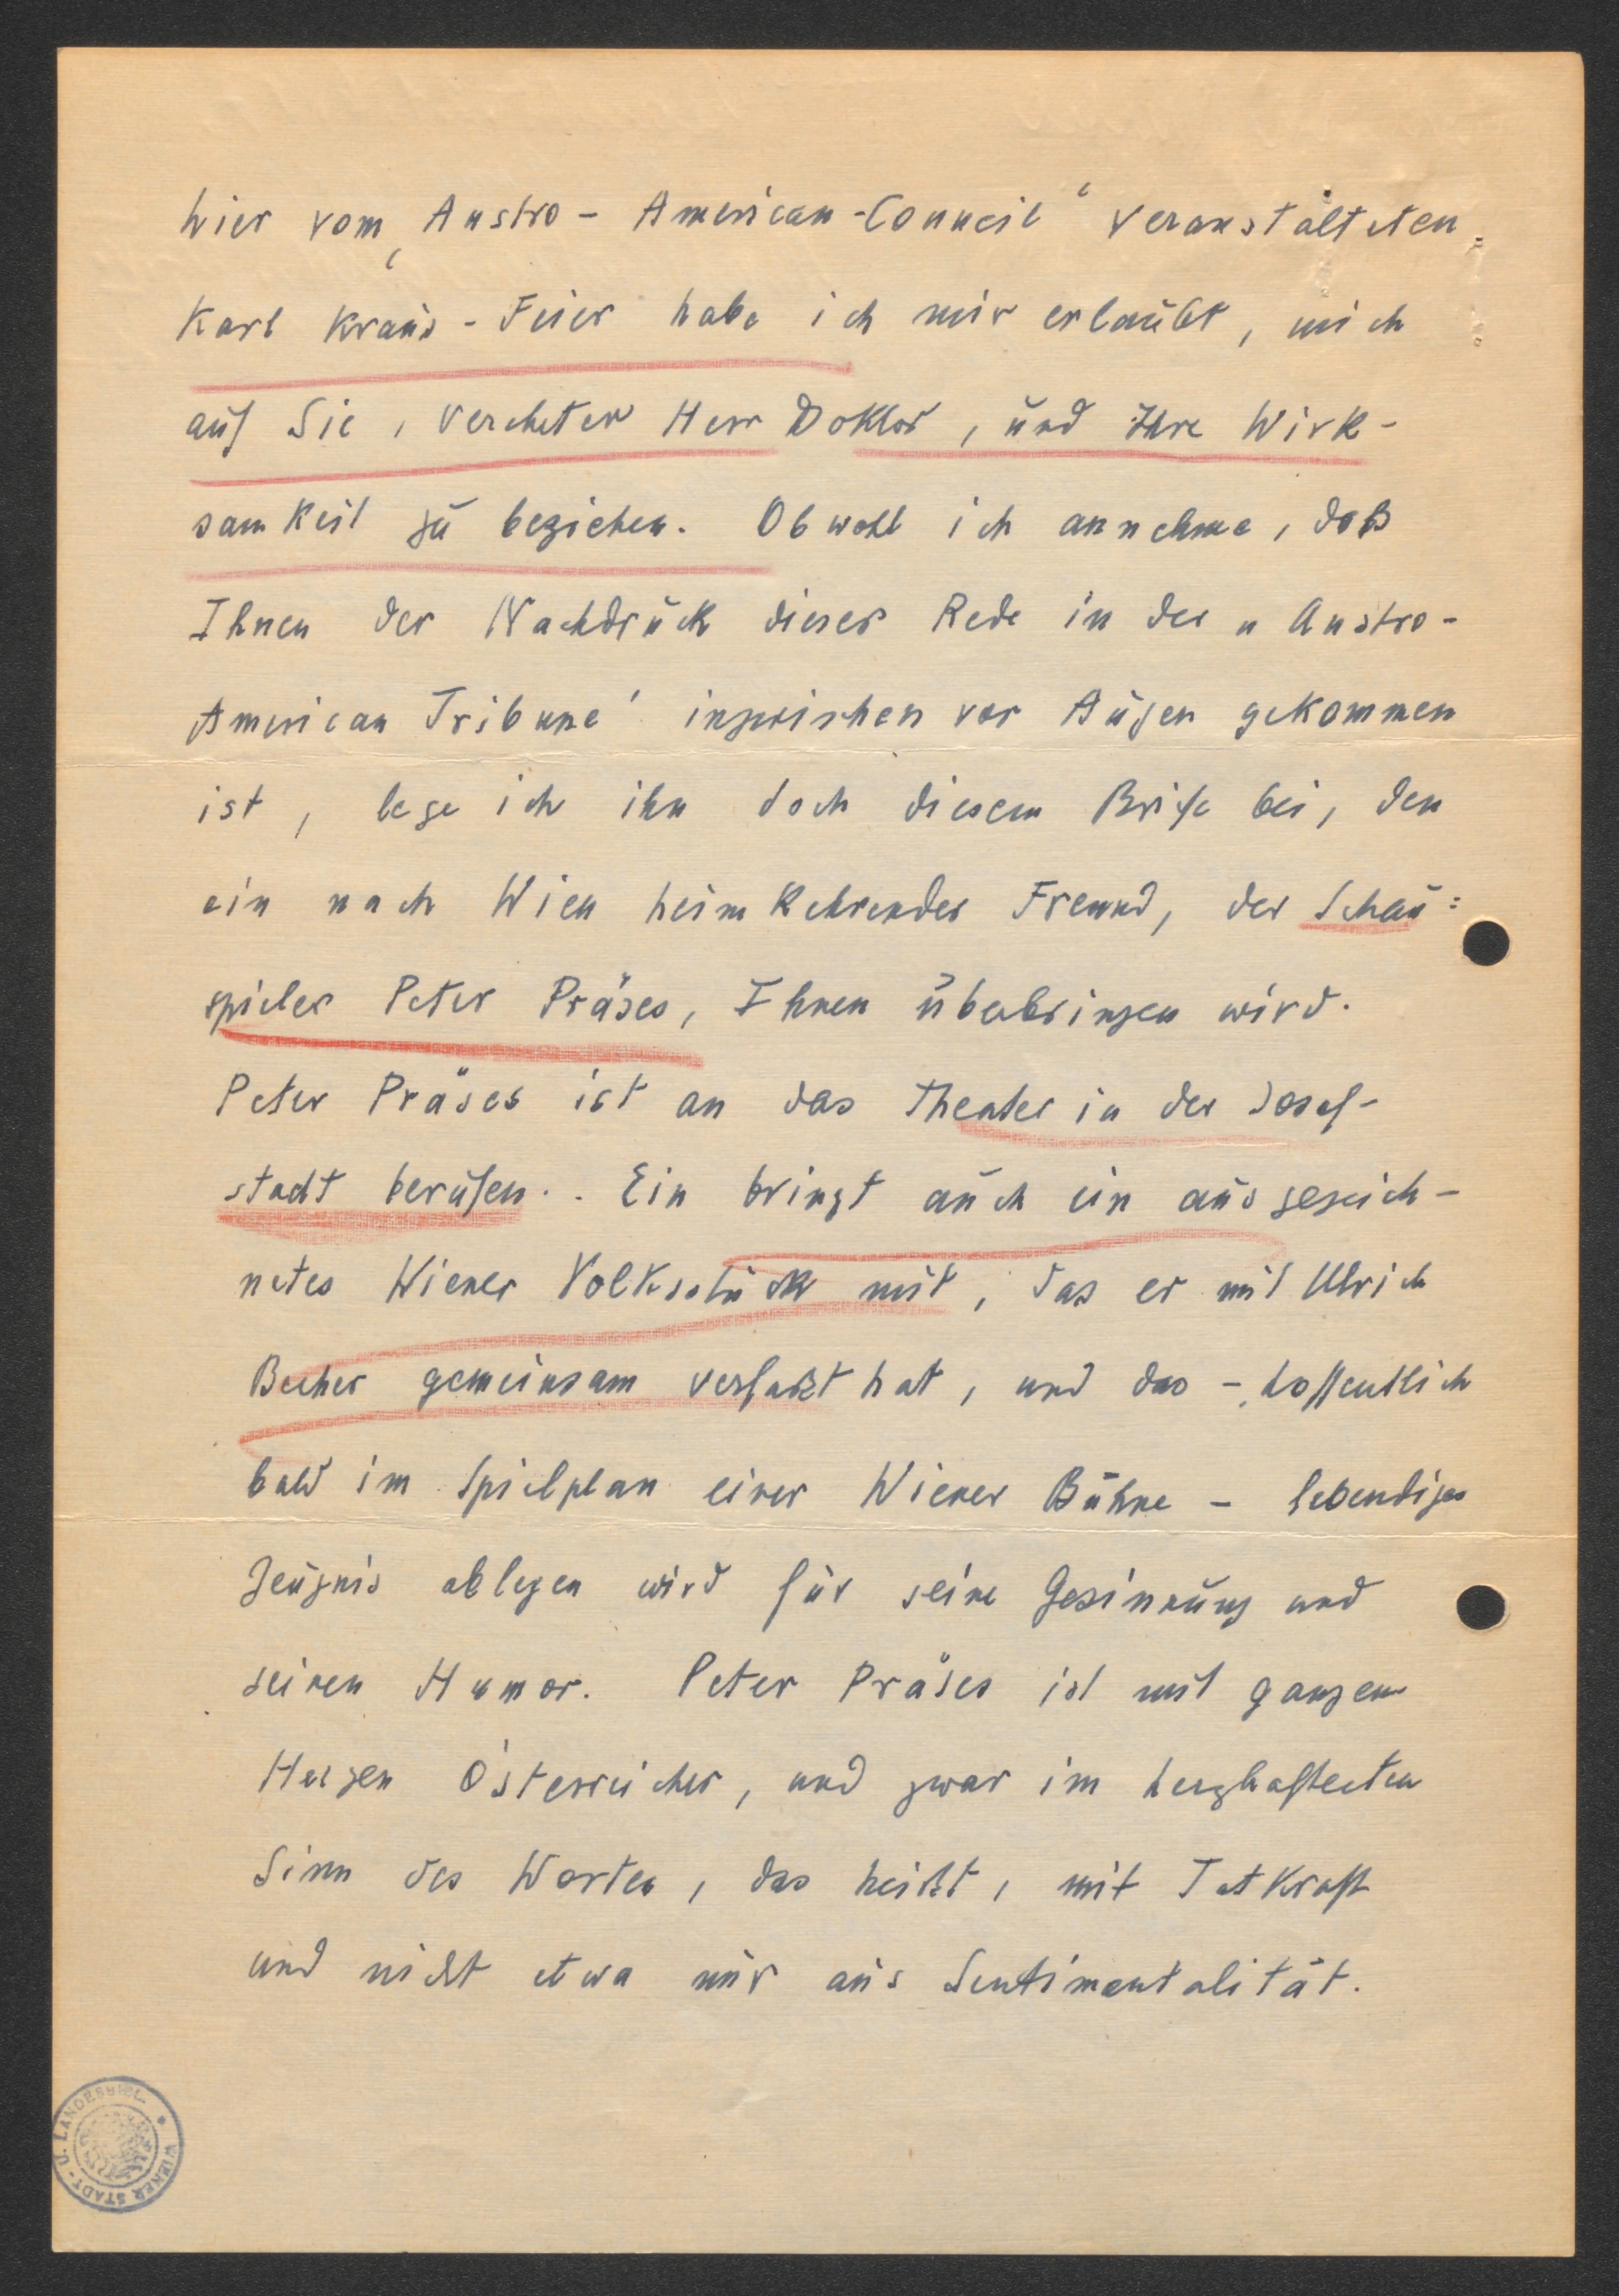 hier vom „Austro-American-Council“ veranstalteten
Karl Kraus-Feier habe ich mir erlaubt, mich
auf Sie, verehrter Herr Doktor, und Ihre Wirk-
samkeit zu beziehen. Obwohl ich annehme, daß
Ihnen der Nachdruck dieser Rede in der „Austro-
American Tribune“ inzwischen vor Augen gekommen
ist, lege ich ihn doch diesem Briefe bei, den
ein nach Wien heimkehrender Freund, der Schau=
spieler Peter Präses, Ihnen überbringen wird.
Peter Präses ist an das Theater in der Josef-
stadt berufen.. Ein bringt auch ein ausgezeich-
netes Wiener Volksstück mit, das er mit Ulrich
Becher gemeinsam verfaßt hat, und das – hoffentlich
bald im Spielplan einer Wiener Bühne – lebendiges
Zeugnis ablegen wird für seine Gesinnung und
seinen Humor. Peter Präses ist mit ganzem
Herzen Österreicher, und zwar im herzhaftesten
Sinn des Wortes, das heißt, mit Tatkraft
und nicht etwa nur aus Sentimentalität.
WIENER STADT- U. LANDESBIBL.